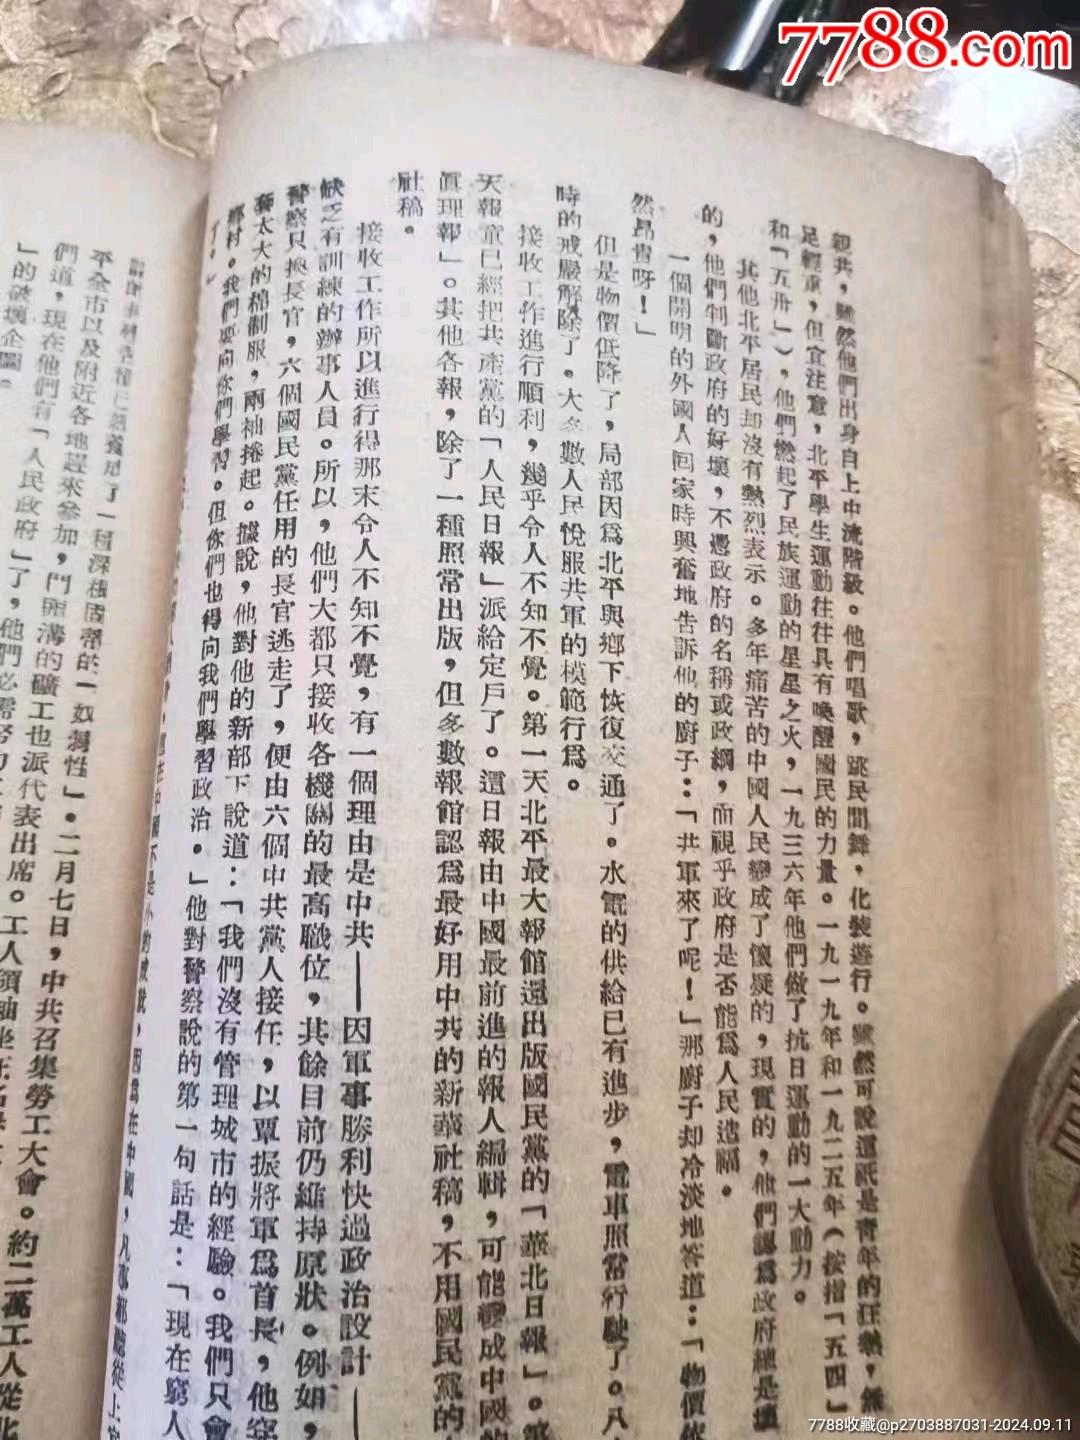 7788.com
親共，雖然他們出身自上中流階級。他們唱歌，跳民間舞，化裝遊行。雖然可說這祇是青年的狂樂，無
足輕重，但食注意，北平學生運動往往具有喚醒國民的力量。一九一九年和一九二五年（按指「五四」
和「五卅」），他們燃起了民族運動的星星之火，一九三六年他們做了抗日運動的一大動力。
其他北平居民却沒有熱烈表示。多年痛苦的中國人民變成了懷疑的，現實的，他們認爲政府總是壞
的，他們判斷政府的好壞，不憑政府的名稱或政綱，而視乎政府是否能爲人民造福。
一個開明的外國人回家時興奮地告訴他的廚子：「共軍來了呢！」那廚子却冷淡地答道：「物價依
然昂貴呀！」
但是物價低降了，局部因爲北平與鄉下恢復交通了。水電的供給已有進步，電車照常行駛了。八
時的戒嚴解除了。大多數人民悅服共軍的模範行爲。
接收工作進行順利，幾乎令人不知不覺。第一天北平最大報館還出版國民黨的「華北日報」。第
天報童已經把共產黨的「人民日報」派給定戶了。這日報由中國最前進的報人編輯，可能變成中國的
眞理報」。其他各報，除了一種照常出版，但多數報館認爲最好用中共的新華社稿，不用國民黨的
社稿。
接收工作所以進行得那末令人不知不覺，有一個理由是中共——因軍事勝利快過政治設計——
缺乏有訓練的辦事人員。所以，他們大都只接收各機關的最高職位，其餘目前仍維持原狀。例如，
警察只換長官，六個國民黨任用的長官逃走了，便由六個中共黨人接任，以覃振將軍爲首長，他穿
套太大的棉制服，兩袖捲起。據說，他對他的新部下說道：「我們沒有管理城市的經驗。我們只會
鄉村。我們要向你們學習。但你們也得向我們學習政治。」他對警察說的第一句話是：「現在窮人
了。」
不是小的成就，因爲在中國，凡事都聽從上
了一種深根固蒂的「奴隸性」。二月七日，中共召集勞工大會。約二萬工人從北
平全市以及附近各地趕來參加，門頭溝的礦工也派代表出席。工人領袖坐在
們道，現在他們有「人民政府」了，他們必需努力
」的破壞企圖。
7788收藏@p2703887031-2024.09.11